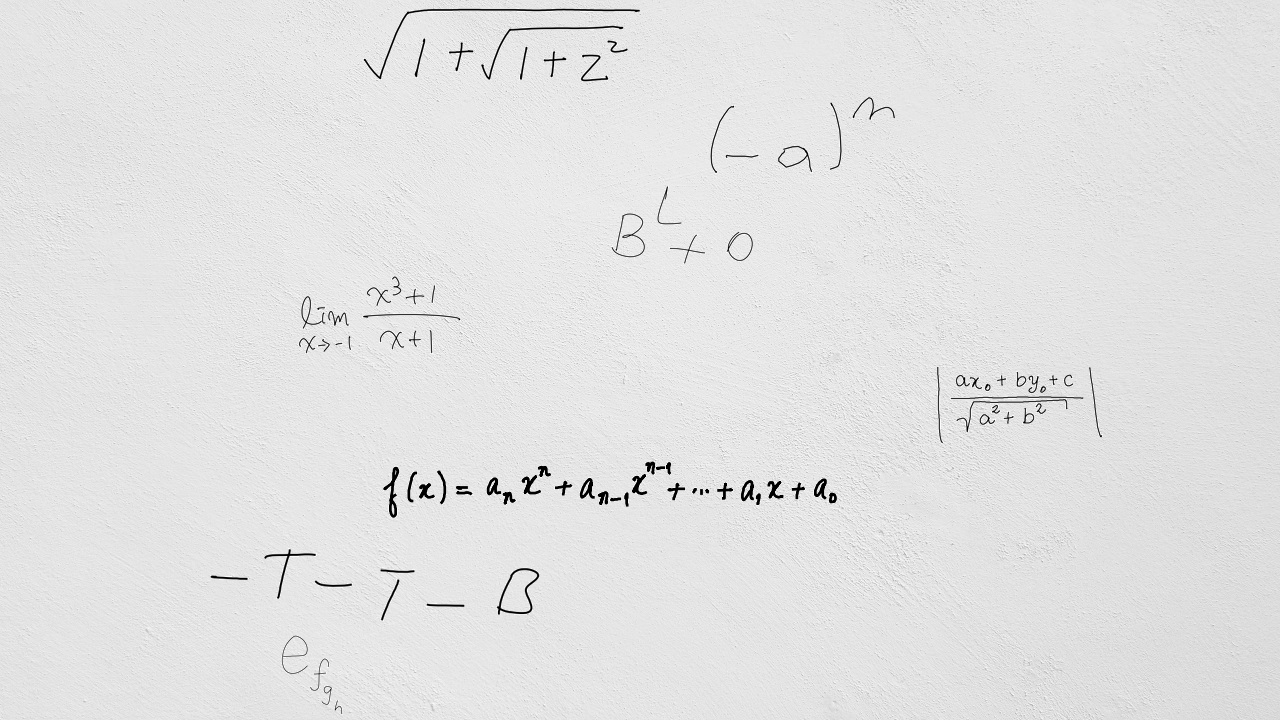 $\sqrt{1+\sqrt{1+z^2}}$
$(-a)^n$
$B^L+0$
$\lim_{x \to -1} \frac{x^3+1}{x+1}$
$\left|\frac{ax_0+by_0+c}{\sqrt{a^2+b^2}}\right|$
$f(x)=a_nx^n+a_{n-1}x^{n-1}+\cdots+a_1x+a_0$
$-T-T-B$
$e_{f_{g_h}}$